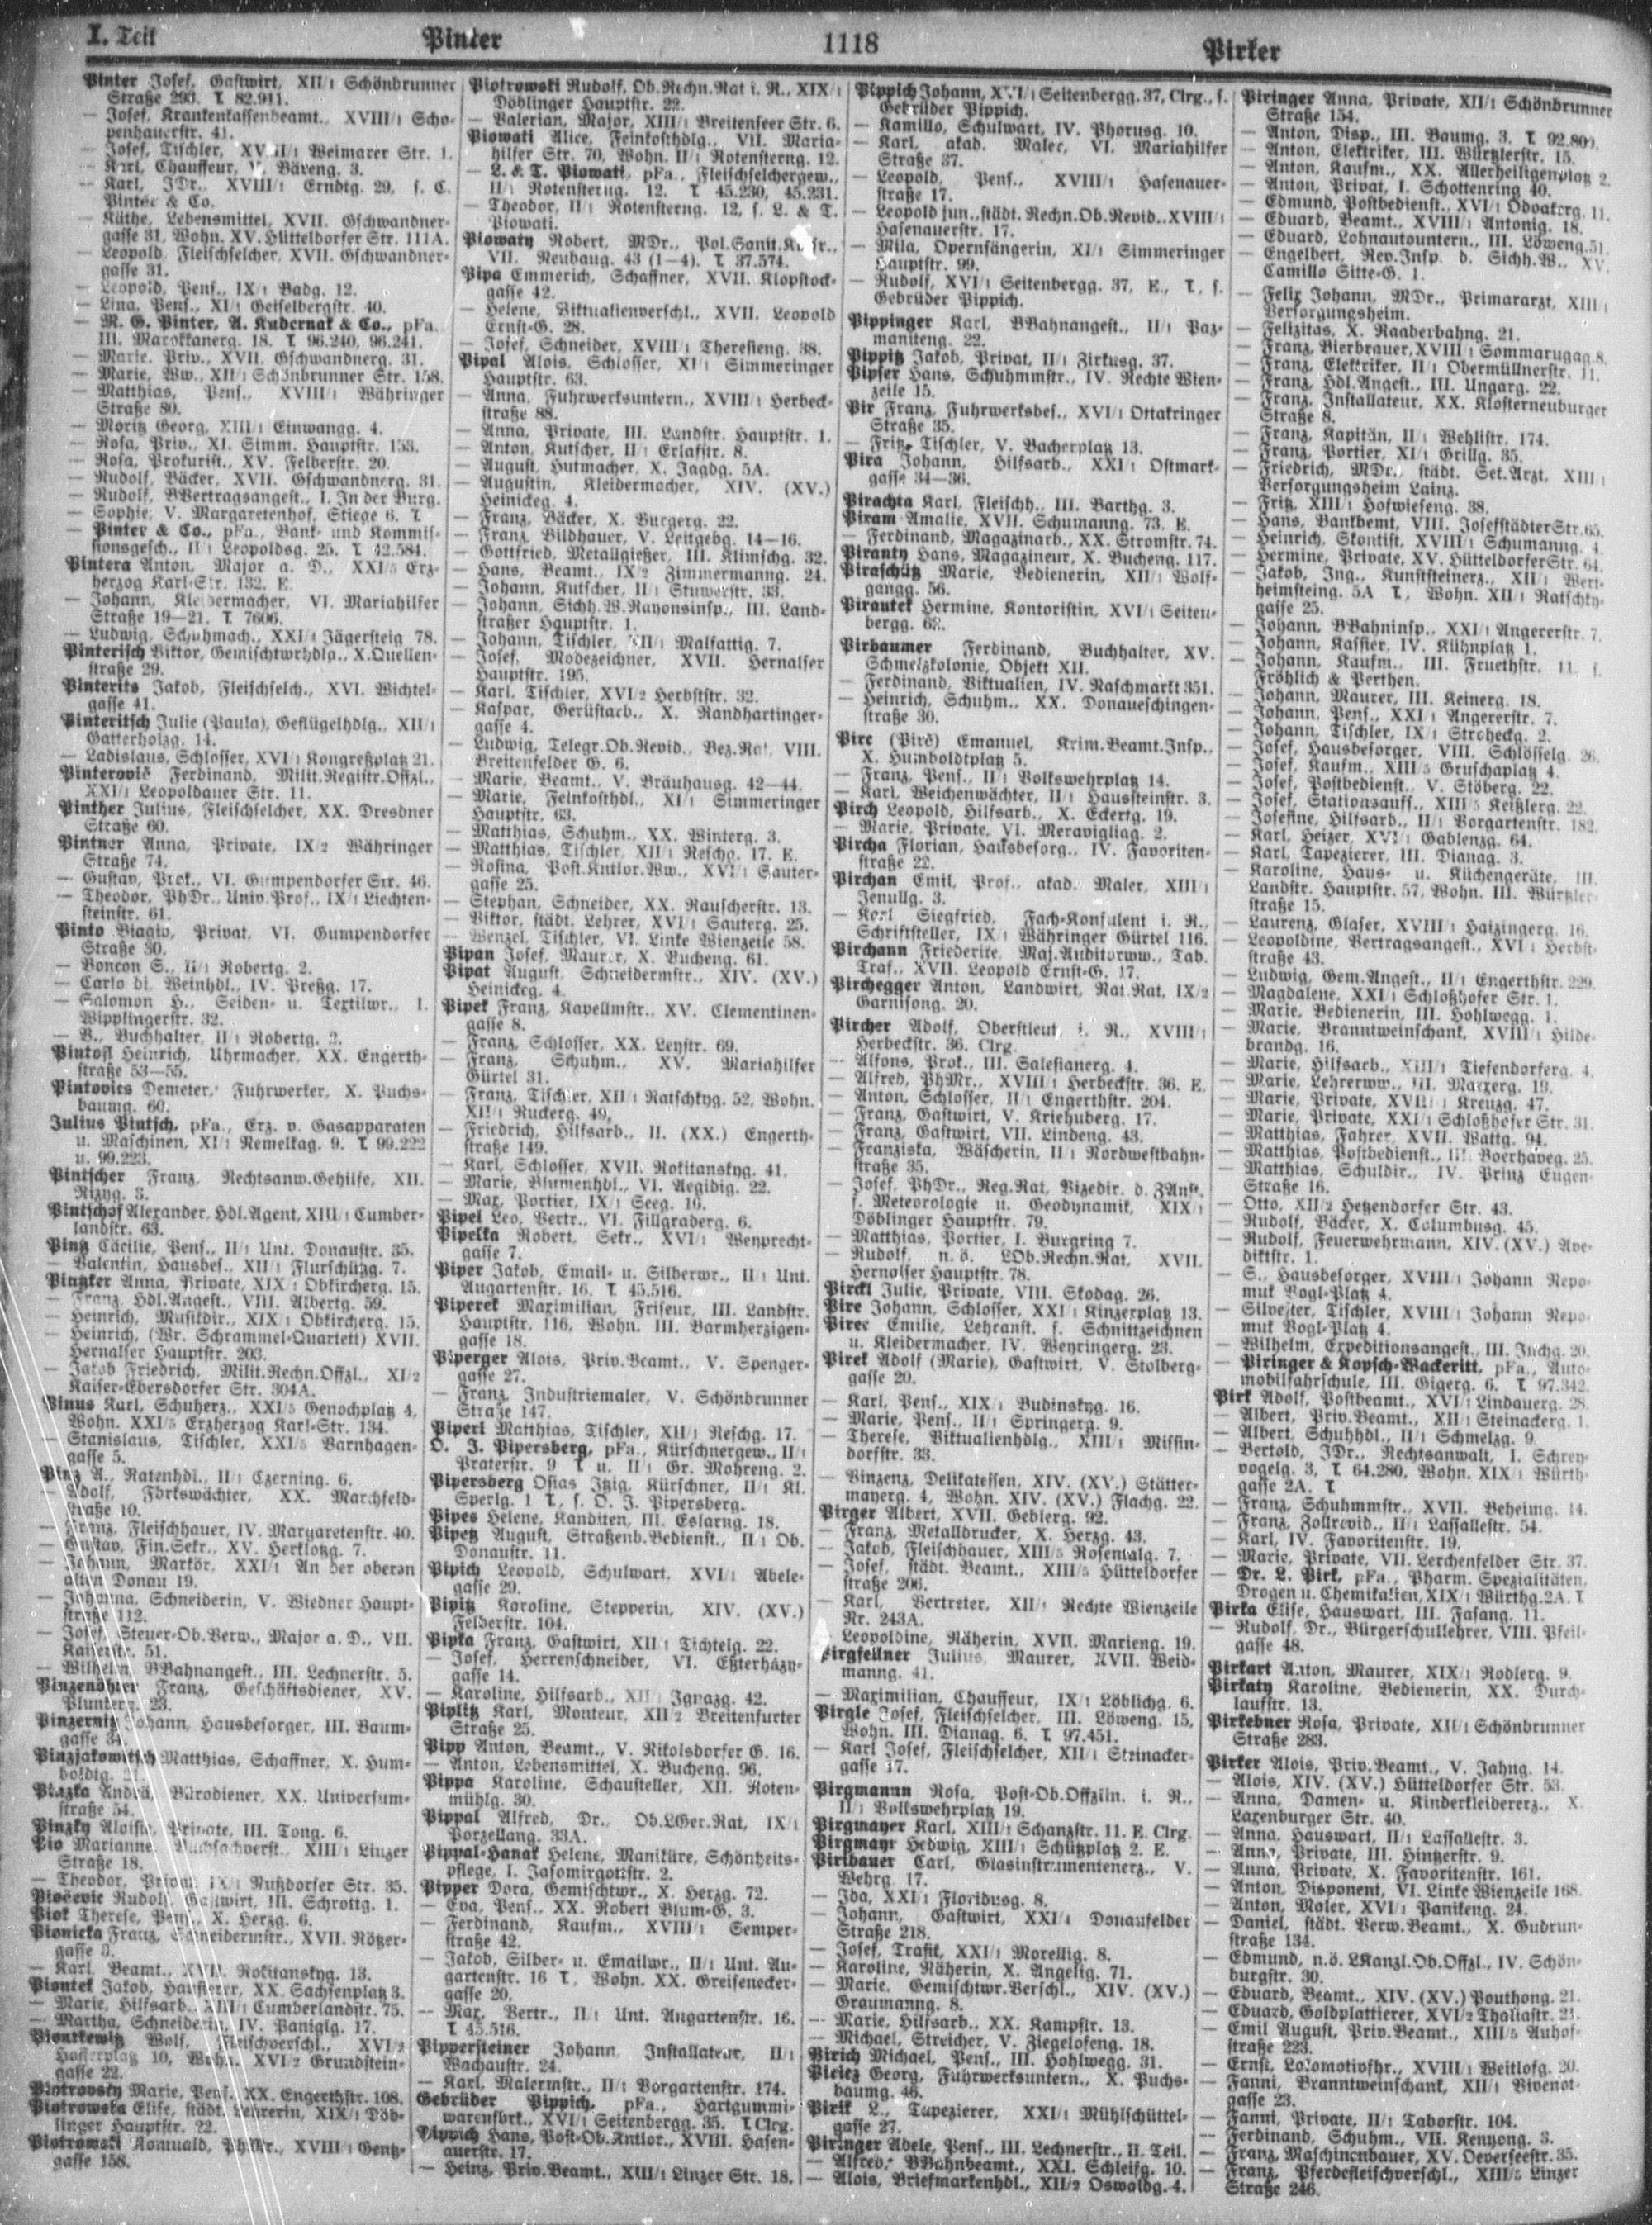 I. Teil
Pinter
1118
Pirker
Pinter Josef, Gastwirt, XII/1 Schönbrunner
Straße 293. T. 82.911.
— Josef, Krankenkassenbeamt., XVIII/1 Scho-
penhauerstr. 41.
— Josef, Tischler, Weimarer Str. 1.
— Karl, Chauffeur, Bäreng. 3.
— Karl, JDr., XVIII/1 Erndtg. 29, s. C.
Pinter & Co.
— Käthe, Lebensmittel, XVII. Gschwandner-
gasse 31, Wohn. XV. Hütteldorfer Str. 111A.
— Leopold, Fleischselcher, XVII. Gschwandner-
gasse 31.
— Leopold, Pens., IX/1 Badg. 12.
— Lina, Pens., XI/1 Geiselbergstr. 40.
— M. G. Pinter, A. Kudernak & Co., pFa.,
III. Marokkanerg. 18. T. 96.240, 96.241.
— Marie, Priv., XVII. Gschwandnerg. 31.
— Marie, Ww., XII/1 Schönbrunner Str. 158.
— Matthias, Pens., XVIII/1 Währinger
Straße 80.
— Moritz Georg, XIII/1 Einwangg. 4.
— Rosa, Priv., XI. Simm. Hauptstr. 153.
— Rosa, Prokurist., XV. Felberstr. 20.
— Rudolf, Bäcker, XVII. Gschwandnerg. 31.
— Rudolf, BVertragsangest., I. In der Burg.
— Sophie, V. Margaretenhof, Stiege 6. T.
— Pinter & Co., pFa., Bank- und Kommis-
sionsgesch., II/1 Leopoldsg. 25. T. 42.584.
Pintera Anton, Major a. D., XXI/5 Erz-
herzog Karl-Str. 132. E.
— Johann, Kleidermacher, VI. Mariahilfer
Straße 19—21. T. 7606.
— Ludwig, Schuhmach., XXI/4 Jägersteig 78.
Pinterisch Viktor, Gemischtwrhdlg., X. Quellen-
straße 29.
Pinterits Jakob, Fleischselch., XVI. Wichtel-
gasse 41.
Pinteritsch Julie (Paula), Geflügelhdlg., XII/1
Gatterholzg. 14.
— Ladislaus, Schlosser, XVI/1 Kongreßplatz 21.
Pinterovič Ferdinand, Milit.Registr.Offzl.,
XXI/1 Leopoldauer Str. 11.
Pinther Julius, Fleischselcher, XX. Dresdner
Straße 60.
Pintner Anna, Private, IX/2 Währinger
Straße 74.
— Gustav, Prok., VI. Gumpendorfer Str. 46.
— Theodor, PhDr., Univ.Prof., IX/1 Liechten-
steinstr. 61.
Pinto Biagio, Privat, VI. Gumpendorfer
Straße 30.
— Boncon S., II/1 Robertg. 2.
— Carlo di, Weinhdl., IV. Preßg. 17.
— Salomon H., Seiden- u. Textilwr., I.
Wipplingerstr. 32.
— B., Buchhalter, II/1 Robertg. 2.
Pintosl Heinrich, Uhrmacher, XX. Engerth-
straße 53—55.
Pintovics Demeter, Fuhrwerker, X. Puchs-
baumg. 60.
Julius Pintsch, pFa., Erz. v. Gasapparaten
u. Maschinen, XI/1 Nemelkag. 9. T. 99.222
u. 99.223.
Pintscher Franz, Rechtsanw.Gehilfe, XII.
Rizyg. 3.
Pintschof Alexander, Hdl.Agent, XIII/1 Cumber-
landstr. 63.
Pintz Cäcilie, Pens., II/1 Unt. Donaustr. 35.
— Valentin, Hausbes., XII/1 Flurschützg. 7.
Pintzker Anna, Private, XIX/1 Obkircherg. 15.
— Franz, Hdl.Angest., VIII. Albertg. 59.
— Heinrich, Musikdir., XIX/1 Obkircherg. 15.
— Heinrich, (Wr. Schrammel-Quartett) XVII.
Hernalser Hauptstr. 203.
— Jakob Friedrich, Milit.Rechn.Offzl., XI/2
Kaiser-Ebersdorfer Str. 304A.
Pinus Karl, Schuherz., XXI/5 Genochplatz 4,
Wohn. XXI/5 Erzherzog Karl-Str. 134.
— Stanislaus, Tischler, XXI/5 Varnhagen-
gasse 5.
Pinz A., Ratenhdl., II/1 Czerning. 6.
— Adolf, Forstwächter, XX. Marchfeld-
straße 10.
— Franz, Fleischhauer, IV. Margaretenstr. 40.
— Gustav, Fin.Sekr., XV. Herklotzg. 7.
— Johann, Markör, XXI/1 An der oberen
alten Donau 19.
— Johanna, Schneiderin, V. Wiedner Haupt-
straße 112.
— Josef, Steuer-Ob.Verw., Major a. D., VII.
Kaiserstr. 51.
— Wilhelm, BBahnangest., III. Lechnerstr. 5.
Pinzenöhler Franz, Geschäftsdiener, XV.
Plunkerg. 23.
Pinzernitz Johann, Hausbesorger, III. Baum-
gasse 34.
Pinzjakowitsch Matthias, Schaffner, X. Hum-
boldtg.
Pinzka Andrä, Bürodiener, XX. Universum-
straße 54.
Pinzky Aloisia, Private, III. Tong. 6.
Pio Marianne, Buchsachverst., XIII/1 Linzer
Straße 18.
— Theodor, Privat, IX/1 Nußdorfer Str. 35.
Piočevic Rudolf, Gastwirt, III. Schrottg. 1.
Piok Therese, Pens., X. Herzg. 6.
Pionicka Franz, Schneidermstr., XVII. Rötzer-
gasse
— Karl, Beamt., XVII. Rokitanskyg. 13.
Piontek Jakob, Hausierer, XX. Sachsenplatz 3.
— Marie, Hilfsarb., XIII/1 Cumberlandstr. 75.
— Martha, Schneiderin, IV. Paniglg. 17.
Piontkewitz Wolf, Fleischverschl., XVI/2
Hofferplatz 10, Wohn. XVI/2 Grundstein-
gasse 22.
Piotrovsky Marie, Pens., XX. Engerthstr. 108.
Piotrowska Elise, städt. Lehrerin, XIX/1 Döb-
linger Hauptstr. 22.
Piotrowski Romuald, PhMr., XVIII/1 Gentz-
gasse 158.
Piotrowski Rudolf, Ob.Rechn.Rat i. R., XIX/1
Döblinger Hauptstr. 22.
— Valerian, Major, XIII/1 Breitenseer Str. 6.
Piowati Alice, Feinkosthdlg., VII. Maria-
hilfer Str. 70, Wohn. II/1 Rotensterng. 12.
— L. & T. Piowati, pFa., Fleischselchergew.,
II/1 Rotensterng. 12. T. 45.230, 45.231.
— Theodor, II/1 Rotensterng. 12, s. L. & T.
Piowati.
Piowaty Robert, MDr., Pol.Sanit.
VII. Neubaug. 43 (1—4). T. 37.574.
Pipa Emmerich, Schaffner, XVII. Klopstock-
gasse 42.
— Helene, Viktualienverschl., XVII. Leopold
Ernst-G. 28.
— Josef, Schneider, XVIII/1 Theresieng. 38.
Pipal Alois, Schlosser, XI/1 Simmeringer
Hauptstr. 63.
— Anna, Fuhrwerksuntern., XVIII/1 Herbeck-
straße 88.
— Anna, Private, III. Landstr. Hauptstr. 1.
— Anton, Kutscher, II/1 Erlafstr. 8.
— August, Hutmacher, X. Jagdg. 5A.
— Augustin, Kleidermacher, XIV. (XV.)
Heinickeg. 4.
— Franz, Bäcker, X. Burgerg. 22.
— Franz, Bildhauer, V. Leitgebg. 14—16.
— Gottfried, Metallgießer, III. Klimschg. 32.
— Hans, Beamt., IX/2 Zimmermanng. 24.
— Johann, Kutscher, II/1 Stuwerstr. 33.
— Johann, Sichh.W.Rayonsinsp., III. Land-
straßer Hauptstr. 1.
— Johann, Tischler, XII/1 Malfattig. 7.
— Josef, Modezeichner, XVII. Hernalser
Hauptstr. 195.
— Karl, Tischler, XVI/2 Herbststr. 32.
— Kaspar, Gerüstarb., X. Randhartinger-
gasse 4.
— Ludwig, Telegr.Ob.Revid., Bez.Rat, VIII.
Breitenfelder G. 6.
— Marie, Beamt., V. Bräuhausg. 42—44.
— Marie, Feinkosthdl., XI/1 Simmeringer
Hauptstr. 63.
— Matthias, Schuhm., XX. Winterg. 3.
— Matthias, Tischler, XII/1 Reschg. 17. E.
— Rosina, Post.Kntlor.Ww., XVI/1 Sauter-
gasse 25.
— Stephan, Schneider, XX. Rauscherstr. 13.
— Viktor, städt. Lehrer, XVI/1 Sauterg. 25.
— Wenzel, Tischler, VI. Linke Wienzeile 58.
Pipan Josef, Maurer, X. Bucheng. 61.
Pipat August, Schneidermstr., XIV. (XV.)
Heinickeg. 4.
Pipek Franz, Kapellmstr., XV. Clementinen-
gasse 8.
— Franz, Schlosser, XX. Leystr. 69.
— Franz, Schuhm., XV. Mariahilfer
Gürtel 31.
— Franz, Tischler, XII/1 Ratschkyg. 52, Wohn.
XII/1 Ruckerg. 49.
— Friedrich, Hilfsarb., II. (XX.) Engerth-
straße 149.
— Karl, Schlosser, XVII. Rokitanskyg. 41.
— Marie, Blumenhdl., VI. Aegidig. 22.
— Max, Portier, IX/1 Seeg. 16.
Pipel Leo, Vertr., VI. Fillgraderg. 6.
Pipelka Robert, Sekr., XVI/1 Weyprecht-
gasse 7.
Piper Jakob, Email- u. Silberwr., II/1 Unt.
Augartenstr. 16. T. 45.516.
Piperek Maximilian, Friseur, III. Landstr.
Hauptstr. 116, Wohn. III. Barmherzigen-
gasse 18.
Piperger Alois, Priv.Beamt., V. Spenger-
gasse 27.
— Franz, Industriemaler, V. Schönbrunner
Straße 147.
Piperl Matthias, Tischler, XII/1 Reschg. 17.
O. J. Pipersberg, pFa., Kürschnergew., II/1
Praterstr. 9 T. u. II/1 Gr. Mohreng. 2.
Pipersberg Osias Itzig, Kürschner, II/1 Kl.
Sperlg. 1 T., s. O. J. Pipersberg.
Pipes Helene, Kanditen, III. Eslarng. 18.
Pipetz August, Straßenb.Bedienst., II/1 Ob.
Donaustr. 11.
Pipich Leopold, Schulwart, XVI/1 Abele-
gasse 29.
Pipitz Karoline, Stepperin, XIV. (XV.)
Felberstr. 104.
Pipka Franz, Gastwirt, XII/1 Tichtelg. 22.
— Josef, Herrenschneider, VI. Eßterházy-
gasse 14.
— Karoline, Hilfsarb., XII/1 Ignazg. 42.
Piplitz Karl, Monteur, XII/2 Breitenfurter
Straße 25.
Pipp Anton, Beamt., V. Nikolsdorfer G. 16.
— Anton, Lebensmittel, X. Bucheng. 96.
Pippa Karoline, Schausteller, XII. Roten-
mühlg. 30.
Pippal Alfred, Dr., Ob.LGer.Rat, IX/1
Porzellang. 33A.
Pippal-Hanak Helene, Maniküre, Schönheits-
pflege, I. Jasomirgottstr. 2.
Pipper Dora, Gemischtwr., X. Herzg. 72.
— Eva, Pens., XX. Robert Blum-G. 3.
— Ferdinand, Kaufm., XVIII/1 Semper-
straße 42.
— Jakob, Silber- u. Emailwr., II/1 Unt. Au-
gartenstr. 16 T., Wohn. XX. Greisenecker-
gasse 20.
— Max, Vertr., II/1 Unt. Augartenstr. 16.
T. 45.516.
Pippersteiner Johann, Installateur, II/1
Wachaustr. 24.
— Karl, Malermstr., II/1 Vorgartenstr. 174.
Gebrüder Pippich, pFa., Hartgummi-
warenfbrk., XVI/1 Seitenbergg. 35. T. Clrg.
Pippich Hans, Post-Ob.Kntlor., XVIII. Hasen-
auerstr. 17.
— Heinz, Priv.Beamt., XIII/1 Linzer Str. 18.
Pippich Johann, XVI/1 Seitenbergg. 37, Clrg., s.
Gebrüder Pippich.
— Kamillo, Schulwart, IV. Phorusg. 10.
— Karl, akad. Maler, VI. Mariahilfer
Straße 37.
— Leopold, Pens., XVIII/1 Hasenauer-
straße 17.
— Leopold jun., städt. Rechn.Ob.Revid., XVIII/1
Hasenauerstr. 17.
— Mila, Opernsängerin, XI/1 Simmeringer
Hauptstr. 99.
— Rudolf, XVI/1 Seitenbergg. 37, E., T., s.
Gebrüder Pippich.
Pippinger Karl, BBahnangest., II/1 Paz-
maniteng. 22.
Pippitz Jakob, Privat, II/1 Zirkusg. 37.
Pipser Hans, Schuhmmstr., IV. Rechte Wien-
zeile 15.
Pir Franz, Fuhrwerksbes., XVI/1 Ottakringer
Straße 35.
— Fritz, Tischler, V. Bacherplatz 13.
Pira Johann, Hilfsarb., XXI/1 Ostmark-
gasse 34—36.
Pirachta Karl, Fleischh., III. Barthg. 3.
Piram Amalie, XVII. Schumanng. 73. E.
— Ferdinand, Magazinarb., XX. Stromstr. 74.
Piranty Hans, Magazineur, X. Bucheng. 117.
Piraschütz Marie, Bedienerin, XII/1 Wolf-
gangg. 56.
Pirautek Hermine, Kontoristin, XVI/1 Seiten-
bergg. 63.
Pirbaumer Ferdinand, Buchhalter, XV.
Schmelzkolonie, Objekt XII.
— Ferdinand, Viktualien, IV. Naschmarkt 351.
— Heinrich, Schuhm., XX. Donaueschingen-
straße 30.
Pirc (Pirč) Emanuel, Krim.Beamt.Insp.,
X. Humboldtplatz 5.
— Franz, Pens., II/1 Volkswehrplatz 14.
— Karl, Weichenwächter, II/1 Haussteinstr. 3.
Pirch Leopold, Hilfsarb., X. Eckertg. 19.
— Marie, Private, VI. Meravigliag. 2.
Pircha Florian, Hausbesorg., IV. Favoriten-
straße 22.
Pirchan Emil, Prof., akad. Maler, XIII/1
Jenullg. 3.
— Karl Siegfried, Fach-Konsulent i. R.,
Schriftsteller, IX/1 Währinger Gürtel 116.
Pirchann Friederike, Maj.Auditorww., Tab.
Traf., XVII. Leopold Ernst-G. 17.
Pirchegger Anton, Landwirt, Nat.Rat, IX/2
Garnisong. 20.
Pircher Adolf, Oberstleut. i. R., XVIII/1
Herbeckstr. 36. Clrg.
— Alfons, Prok., III. Salesianerg. 4.
— Alfred, PhMr., XVIII/1 Herbeckstr. 36. E.
— Anton, Schlosser, II/1 Engerthstr. 204.
— Franz, Gastwirt, V. Kriehuberg. 17.
— Franz, Gastwirt, VII. Lindeng. 43.
— Franziska, Wäscherin, II/1 Nordwestbahn-
straße 35.
— Josef, PhDr., Reg.Rat, Vizedir. d. ZAnst.
f. Meteorologie u. Geodynamik, XIX/1
Döblinger Hauptstr. 79.
— Matthias, Portier, I. Burgring 7.
— Rudolf, n. ö. LOb.Rechn.Rat, XVII.
Hernalser Hauptstr. 78.
Pirckl Julie, Private, VIII. Skodag. 26.
Pire Johann, Schlosser, XXI/1 Kinzerplatz 13.
Pirec Emilie, Lehranst. f. Schnittzeichnen
u. Kleidermacher, IV. Weyringerg. 23.
Pirek Adolf (Marie), Gastwirt, V. Stolberg-
gasse 20.
— Karl, Pens., XIX/1 Budinskyg. 16.
— Marie, Pens., II/1 Springerg. 9.
— Therese, Viktualienhdlg., XIII/1 Missin-
dorfstr. 33.
— Vinzenz, Delikatessen, XIV. (XV.) Stätter-
mayerg. 4, Wohn. XIV. (XV.) Flachg. 22.
Pirger Albert, XVII. Geblerg. 92.
— Franz, Metalldrucker, X. Herzg. 43.
— Jakob, Fleischhauer, XIII/5 Rosentalg. 7.
— Josef, städt. Beamt., XIII/5 Hütteldorfer
straße 206.
— Karl, Vertreter, XII/1 Rechte Wienzeile
Nr. 243A.
Leopoldine, Näherin, XVII. Marieng. 19.
Pirgfellner Julius, Maurer, XVII. Weid-
manng. 41.
— Maximilian, Chauffeur, IX/1 Löblichg. 6.
Pirgle Josef, Fleischselcher, III. Löweng. 15,
Wohn. III. Dianag. 6. T. 97.451.
— Karl Josef, Fleischselcher, XII/1 Steinacker-
gasse 17.
Pirgmann Rosa, Post-Ob.Offziln. i. R.,
II/1 Volkswehrplatz 19.
Pirgmayer Karl, XIII/1 Schanzstr. 11. E. Clrg.
Pirgmayr Hedwig, XIII/1 Schützplatz 2. E.
Piribauer Carl, Glasinstrumentenerz., V.
Wehrg. 17.
— Ida, XXI/1 Floridusg. 8.
— Johann, Gastwirt, XXI/4 Donaufelder
Straße 218.
— Josef, Trafik, XXI/1 Morellig. 8.
— Karoline, Näherin, X. Angelig. 71.
— Marie, Gemischtwr.Verschl., XIV. (XV.)
Graumanng. 8.
— Marie, Hilfsarb., XX. Kampstr. 13.
— Michael, Streicher, V. Ziegelofeng. 18.
Pirich Michael, Pens., III. Hohlwegg. 31.
Piricz Georg, Fuhrwerksuntern., X. Puchs-
baumg. 46.
Pirik L., Tapezierer, XXI/1 Mühlschüttel-
gasse 27.
Piringer Adele, Pens., III. Lechnerstr., II. Teil.
— Alfred, BBahnbeamt., XXI. Schleifg. 10.
— Alois, Briefmarkenhdl., XII/2 Oswaldg. 4.
Piringer Anna, Private, XII/1 Schönbrunner
Straße 154.
— Anton, Disp., III. Baumg. 3. T. 92.809.
— Anton, Elektriker, III. Würtzlerstr. 15.
— Anton, Kaufm., XX. Allerheiligenplatz 2.
— Anton, Privat, I. Schottenring 40.
— Edmund, Postbedienst., XVI/1 Odoakerg. 11.
— Eduard, Beamt., XVIII/1 Antonig. 18.
— Eduard, Lohnautountern., III. Löweng. 51.
— Engelbert, Rev.Insp. d. Sichh.W., XV.
Camillo Sitte-G. 1.
— Felix Johann, MDr., Primararzt, XIII/1
Versorgungsheim.
— Felizitas, X. Raaberbahng. 21.
— Franz, Bierbrauer, XVIII/1 Sommarugag. 8.
— Franz, Elektriker, II/1 Obermüllnerstr. 11.
— Franz, Hdl.Angest., III. Ungarg. 22.
— Franz, Installateur, XX. Klosterneuburger
Straße 8.
— Franz, Kapitän, II/1 Wehlistr. 174.
— Franz, Portier, XI/1 Grillg. 35.
— Friedrich, MDr., städt. Sek.Arzt, XIII/1
Versorgungsheim Lainz.
— Fritz, XIII/1 Hofwieseng. 38.
— Hans, Bankbemt, VIII. Josefstädter Str. 65.
— Heinrich, Skontist, XVIII/1 Schumanng. 4.
— Hermine, Private, XV. Hütteldorfer Str. 64.
— Jakob, Ing., Kunststeinerz., XII/1 Wert-
heimsteing. 5A T., Wohn. XII/1 Ratschky-
gasse 25.
— Johann, BBahninsp., XXI/1 Angererstr. 7.
— Johann, Kassier, IV. Kühnplatz 1.
— Johann, Kaufm., III. Fruethstr. 11, s.
Fröhlich & Perthen.
— Johann, Maurer, III. Keinerg. 18.
— Johann, Pens., XXI/1 Angererstr. 7.
— Johann, Tischler, IX/1 Stroheckg. 2.
— Josef, Hausbesorger, VIII. Schlösselg. 26.
— Josef, Kaufm., XIII/5 Gruschaplatz 4.
— Josef, Postbedienst., V. Stöberg. 22.
— Josef, Stationsauff., XIII/5 Keißlerg. 22.
— Josefine, Hilfsarb., II/1 Vorgartenstr. 182.
— Karl, Heizer, XVI/1 Gablenzg. 64.
— Karl, Tapezierer, III. Dianag. 3.
— Karoline, Haus- u. Küchengeräte, III.
Landstr. Hauptstr. 57, Wohn. III. Würtzler-
straße 15.
— Laurenz, Glaser, XVIII/1 Haizingerg. 16.
— Leopoldine, Vertragsangest., XVI/1 Herbst-
straße 43.
— Ludwig, Gem.Angest., II/1 Engerthstr. 229.
— Magdalene, XXI/1 Schloßhofer Str. 1.
— Marie, Bedienerin, III. Hohlwegg. 1.
— Marie, Branntweinschank, XVIII/1 Hilde-
brandg. 16.
— Marie, Hilfsarb., XIII/1 Tiefendorferg. 4.
— Marie, Lehrerww., III. Marxerg. 19.
— Marie, Private, XVIII/1 Kreuzg. 47.
— Marie, Private, XXI/1 Schloßhofer Str. 31.
— Matthias, Fahrer, XVII. Wattg. 94.
— Matthias, Postbedienst., III. Boerhaveg. 25.
— Matthias, Schuldir., IV. Prinz Eugen-
Straße 16.
— Otto, XII/2 Hetzendorfer Str. 43.
— Rudolf, Bäcker, X. Columbusg. 45.
— Rudolf, Feuerwehrmann, XIV. (XV.) Ave-
diktstr. 1.
— S., Hausbesorger, XVIII/1 Johann Nepo-
muk Vogl-Platz 4.
— Silvester, Tischler, XVIII/1 Johann Nepo-
muk Vogl-Platz 4.
— Wilhelm, Expeditionsangest., III. Juchg. 20.
— Piringer & Kopsch-Wackeritt, pFa., Auto-
mobilfahrschule, III. Gigerg. 6. T. 97.342.
Pirk Adolf, Postbeamt., XVI/1 Lindauerg. 28.
— Albert, Priv.Beamt., XII/1 Steinackerg. 1.
— Albert, Schuhhdl., II/1 Schmelzg. 9.
— Bertold, JDr., Rechtsanwalt, I. Schrey-
vogelg. 3, T. 64.280, Wohn. XIX/1 Würth-
gasse 2A. T.
— Franz, Schuhmmstr., XVII. Beheimg. 14.
— Franz, Zollrevid., II/1 Lassallestr. 54.
— Karl, IV. Favoritenstr. 19.
— Marie, Private, VII. Lerchenfelder Str. 37.
— Dr. L. Pirk, pFa., Pharm. Spezialitäten,
Drogen u. Chemikalien, XIX/1 Würthg. 2A. T.
Pirka Elise, Hauswart, III. Fasang. 11.
— Rudolf, Dr., Bürgerschullehrer, VIII. Pfeil-
gasse 48.
Pirkart Anton, Maurer, XIX/1 Rodlerg. 9.
Pirkaty Karoline, Bedienerin, XX. Durch-
laufstr. 13.
Pirkebner Rosa, Private, XII/1 Schönbrunner
Straße 283.
Pirker Alois, Priv.Beamt., V. Jahng. 14.
— Alois, XIV. (XV.) Hütteldorfer Str. 53.
— Anna, Damen- u. Kinderkleidererz., X.
Laxenburger Str. 40.
— Anna, Hauswart, II/1 Lassallestr. 3.
— Anna, Private, III. Hintzerstr. 9.
— Anna, Private, X. Favoritenstr. 161.
— Anton, Disponent, VI. Linke Wienzeile 168.
— Anton, Maler, XVI/1 Panikeng. 24.
— Daniel, städt. Verw.Beamt., X. Gudrun-
straße 134.
— Edmund, n.ö. LKanzl.Ob.Offzl., IV. Schön-
burgstr. 30.
— Eduard, Beamt., XIV. (XV.) Pouthong. 21.
— Eduard, Goldplattierer, XVI/2 Thaliastr. 21.
— Emil August, Priv.Beamt., XIII/5 Auhof-
straße 223.
— Ernst, Lokomotivfhr., XVIII/1 Weitlofg. 20.
— Fanni, Branntweinschank, XII/1 Vivenot-
gasse 23.
— Fanni, Private, II/1 Taborstr. 104.
— Ferdinand, Schuhm., VII. Kenyong. 3.
— Franz, Maschinenbauer, XV. Oeverseestr. 35.
— Franz, Pferdefleischverschl., XIII/5 Linzer
Straße 246.